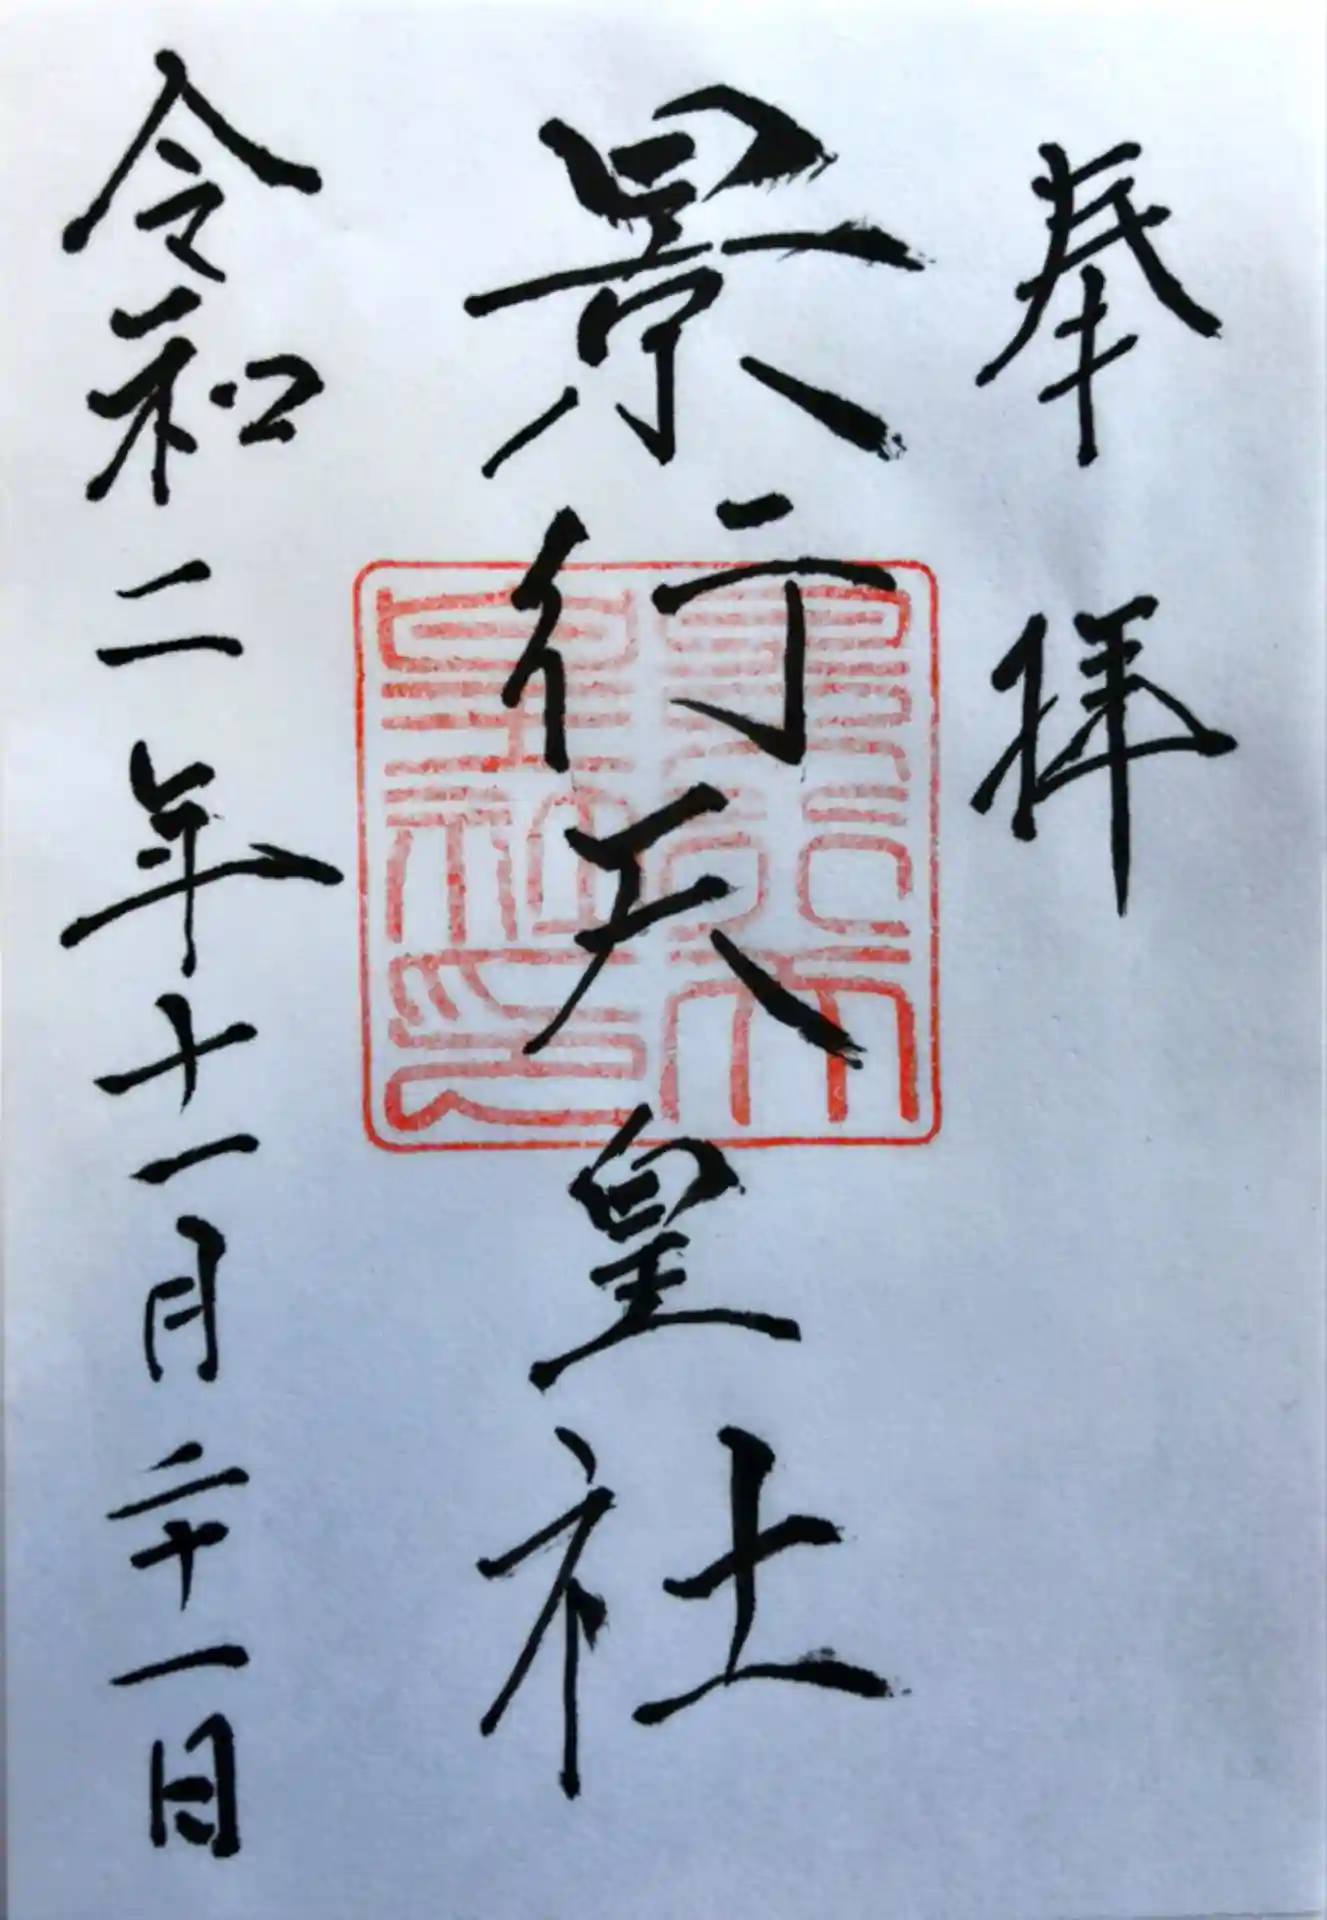 奉拝
景行天皇社
景行天皇社印
令和二年十一月二十一日